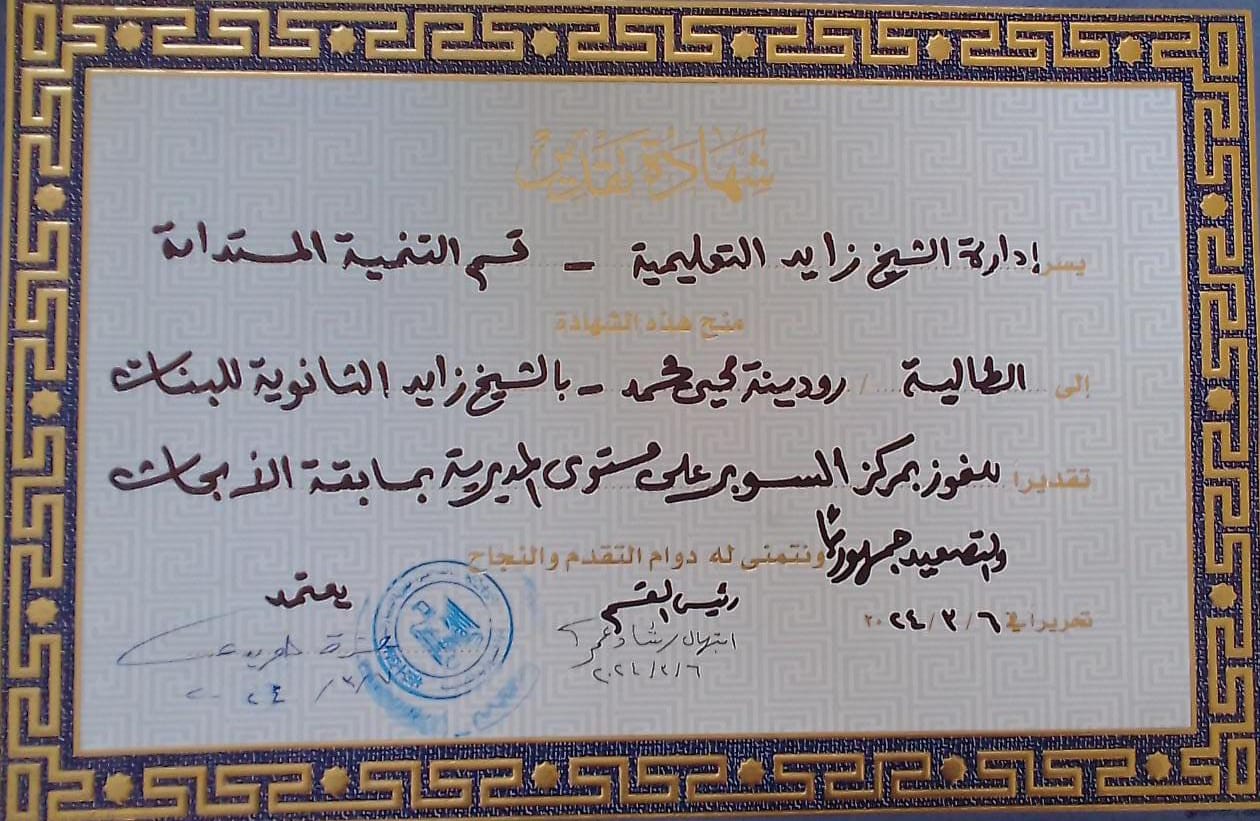 شهادة تقدير
يسر إدارة الشيخ زايد التعليمية - قسم التنمية المستدامة
منح هذه الشهادة
إلى الطالبة / رودينة محيى محمد - بالشيخ زايد الثانوية للبنات
تقديرا للفوز بمركز السوبر على مستوى المديرية بمسابقة الأبحاث
والتصعيد جمهوريًا ونتمنى له دوام التقدم والنجاح
تحريرا في ٦ / ٣ / ٢٠٢٤
رئيس القسم
ابتهال رشاد عمر
٢٠٢٤/٣/٦
يعتمد